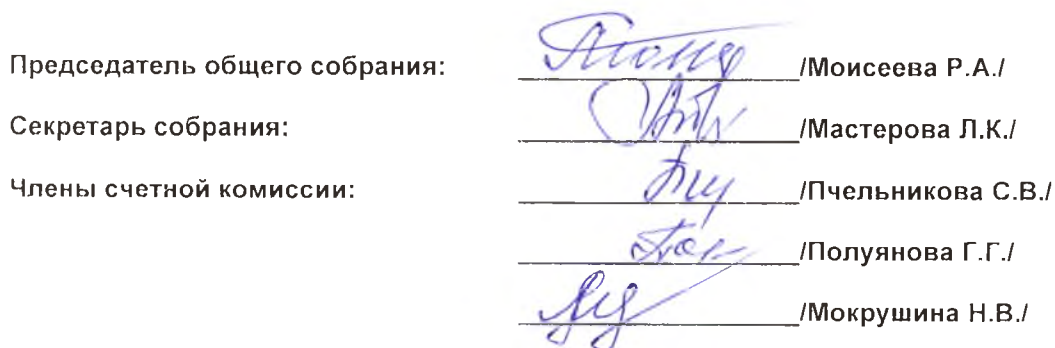 Председатель общего собрания: /Моисеева Р.А./
Секретарь собрания: /Мастерова Л.К./
Члены счетной комиссии: /Пчельникова С.В./
/Полуянова Г.Г./
/Мокрушина Н.В./